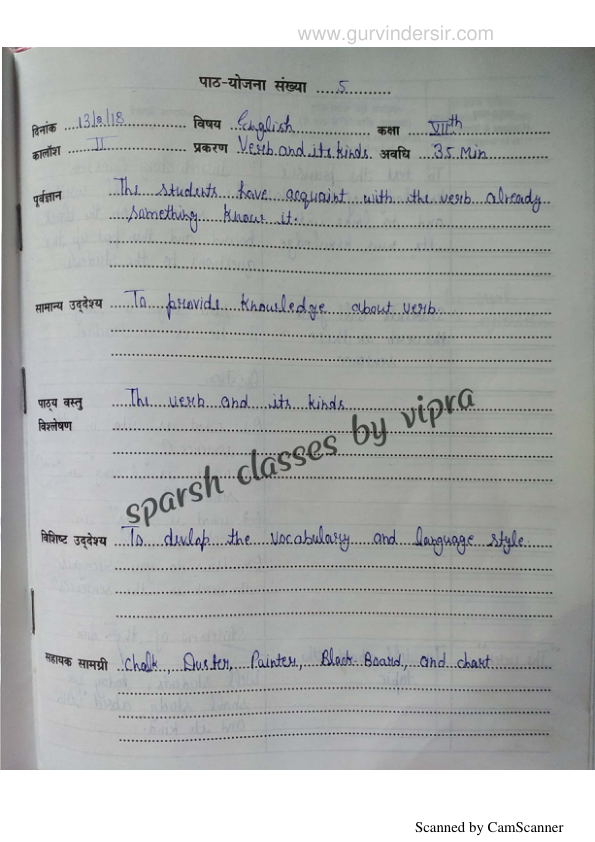 www.gurvindersir.com
पाठ-योजना संख्या .....5..........
दिनांक ....13/2/18........ विषय ..English........ कक्षा ....VIIth....
कालाँश ......II............ प्रकरण .Verb.and.its.kinds. अवधि ...35.Min....
पूर्वज्ञान The students have acquaint with the verb already
something know it.
सामान्य उद्देश्य To provide knowledge about verb
पाठ्य वस्तु The verb and its kinds
विश्लेषण
sparsh classes by vipra
विशिष्ट उद्देश्य To devlop the vocabulary and language style
सहायक सामग्री Chalk, Duster, Painter, Black Board, and chart
Scanned by CamScanner